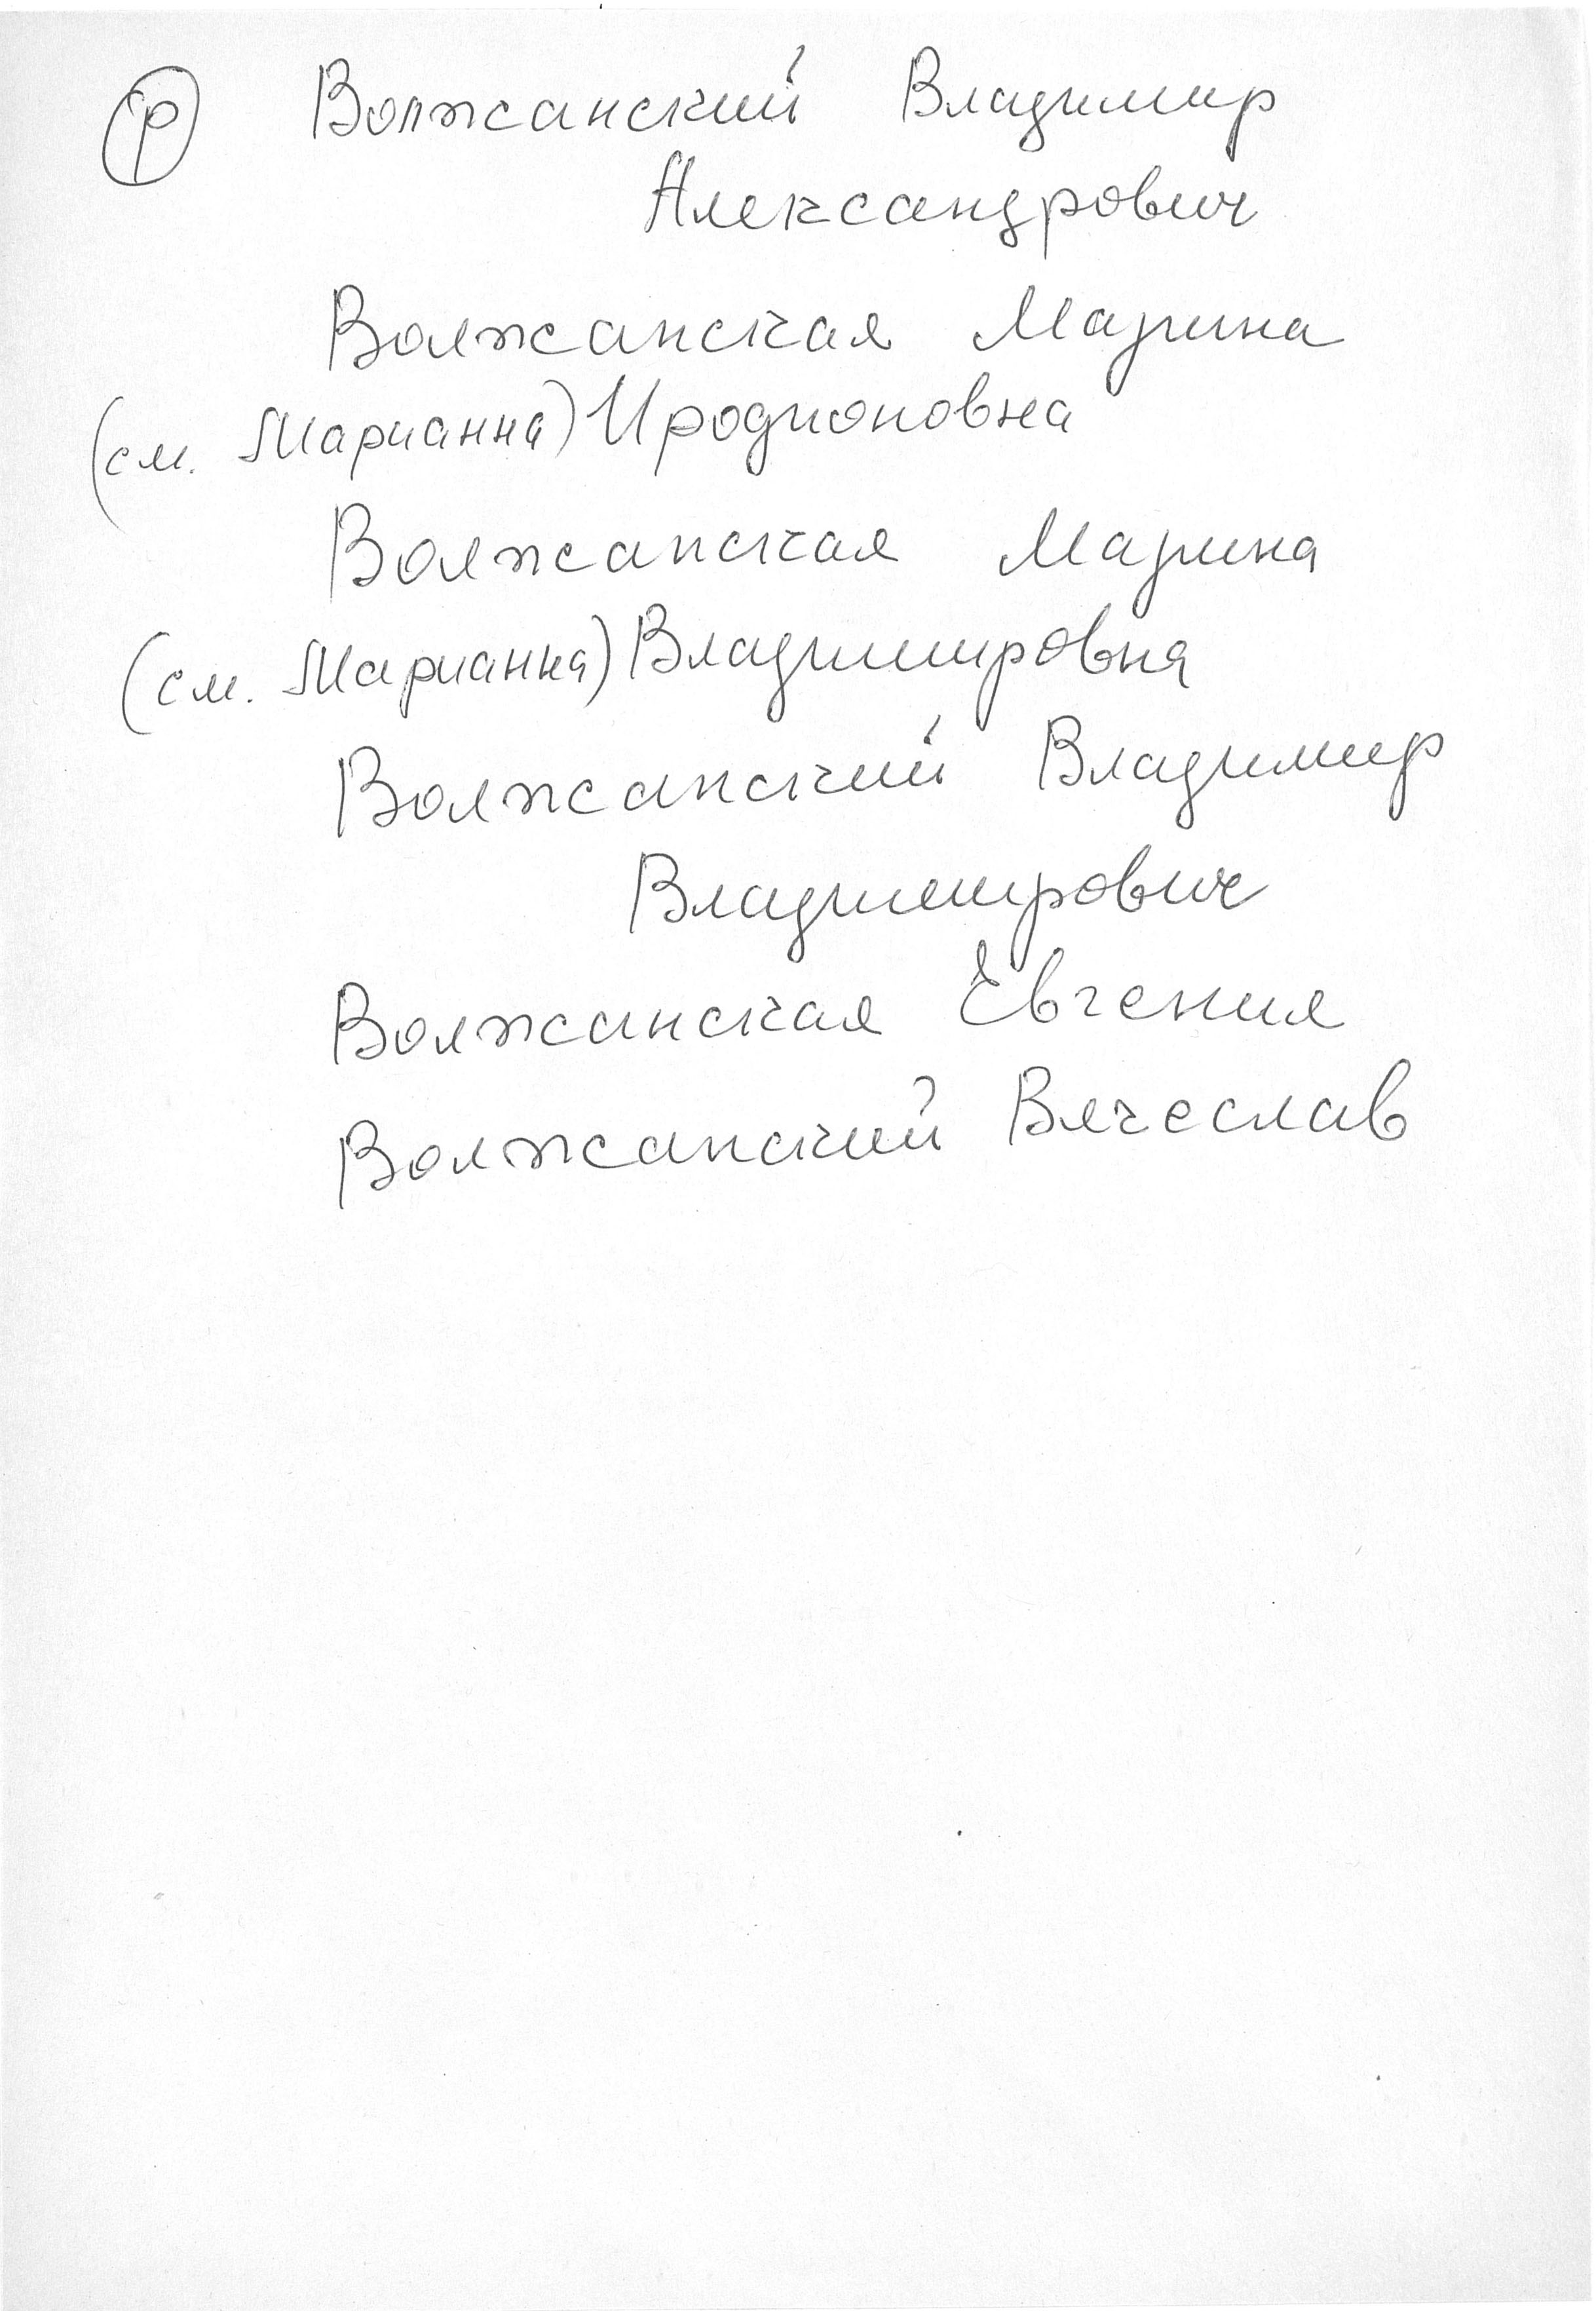 Р Волжанский Владимир
Александрович
Волжанская Марина
(см. Марианна) Иродионовна
Волжанская Марина
(см. Марианна) Владимировна
Волжанский Владимир
Владимирович
Волжанская Евгения
Волжанский Вячеслав